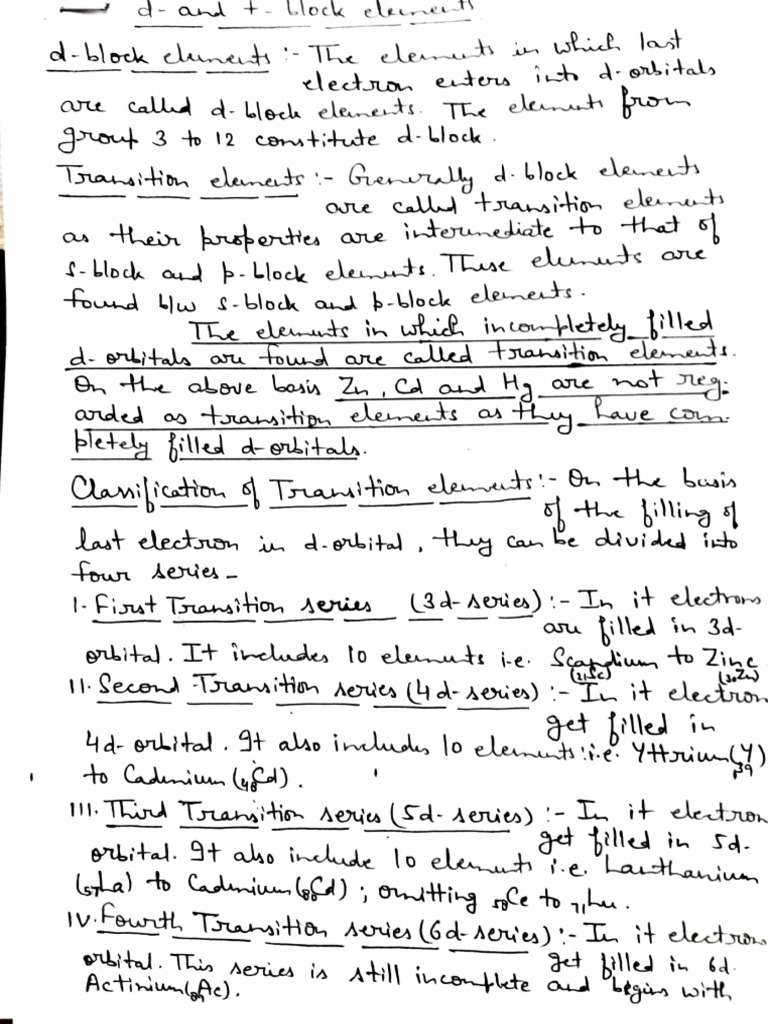 d- and f- block elements
d-block elements :- The elements in which last
electron enters into d-orbitals
are called d-block elements. The elements from
group 3 to 12 constitute d-block.
Transition elements :- Generally d-block elements
are called transition elements
as their properties are intermediate to that of
s-block and p-block elements. These elements are
found b/w s-block and p-block elements.
The elements in which incompletely filled
d-orbitals are found are called transition elements.
On the above basis Zn, Cd and Hg are not reg-
arded as transition elements as they have com-
pletely filled d-orbitals.
Classification of Transition elements :- On the basis
of the filling of
last electron in d-orbital, they can be divided into
four series –
I. First Transition series (3d-series) :- In it electrons
are filled in 3d-
orbital. It includes 10 elements i.e. Scandium to Zinc
(21Sc) (30Zn)
II. Second Transition series (4d-series) :- In it electron
get filled in
4d-orbital. It also includes 10 elements :i.e. YTtrium(Y)
39
to Cadmium (48Cd).
III. Third Transition series (5d-series) :- In it electron
get filled in 5d-
orbital. It also include 10 elements i.e. Lanthanium
(57La) to Cadmium (Cd) ; omitting 58Ce to 71Lu.
IV. Fourth Transition series (6d-series) :- In it electrons
get filled in 6d.
orbital. This series is still incomplete and begins with
Actinium(89Ac).